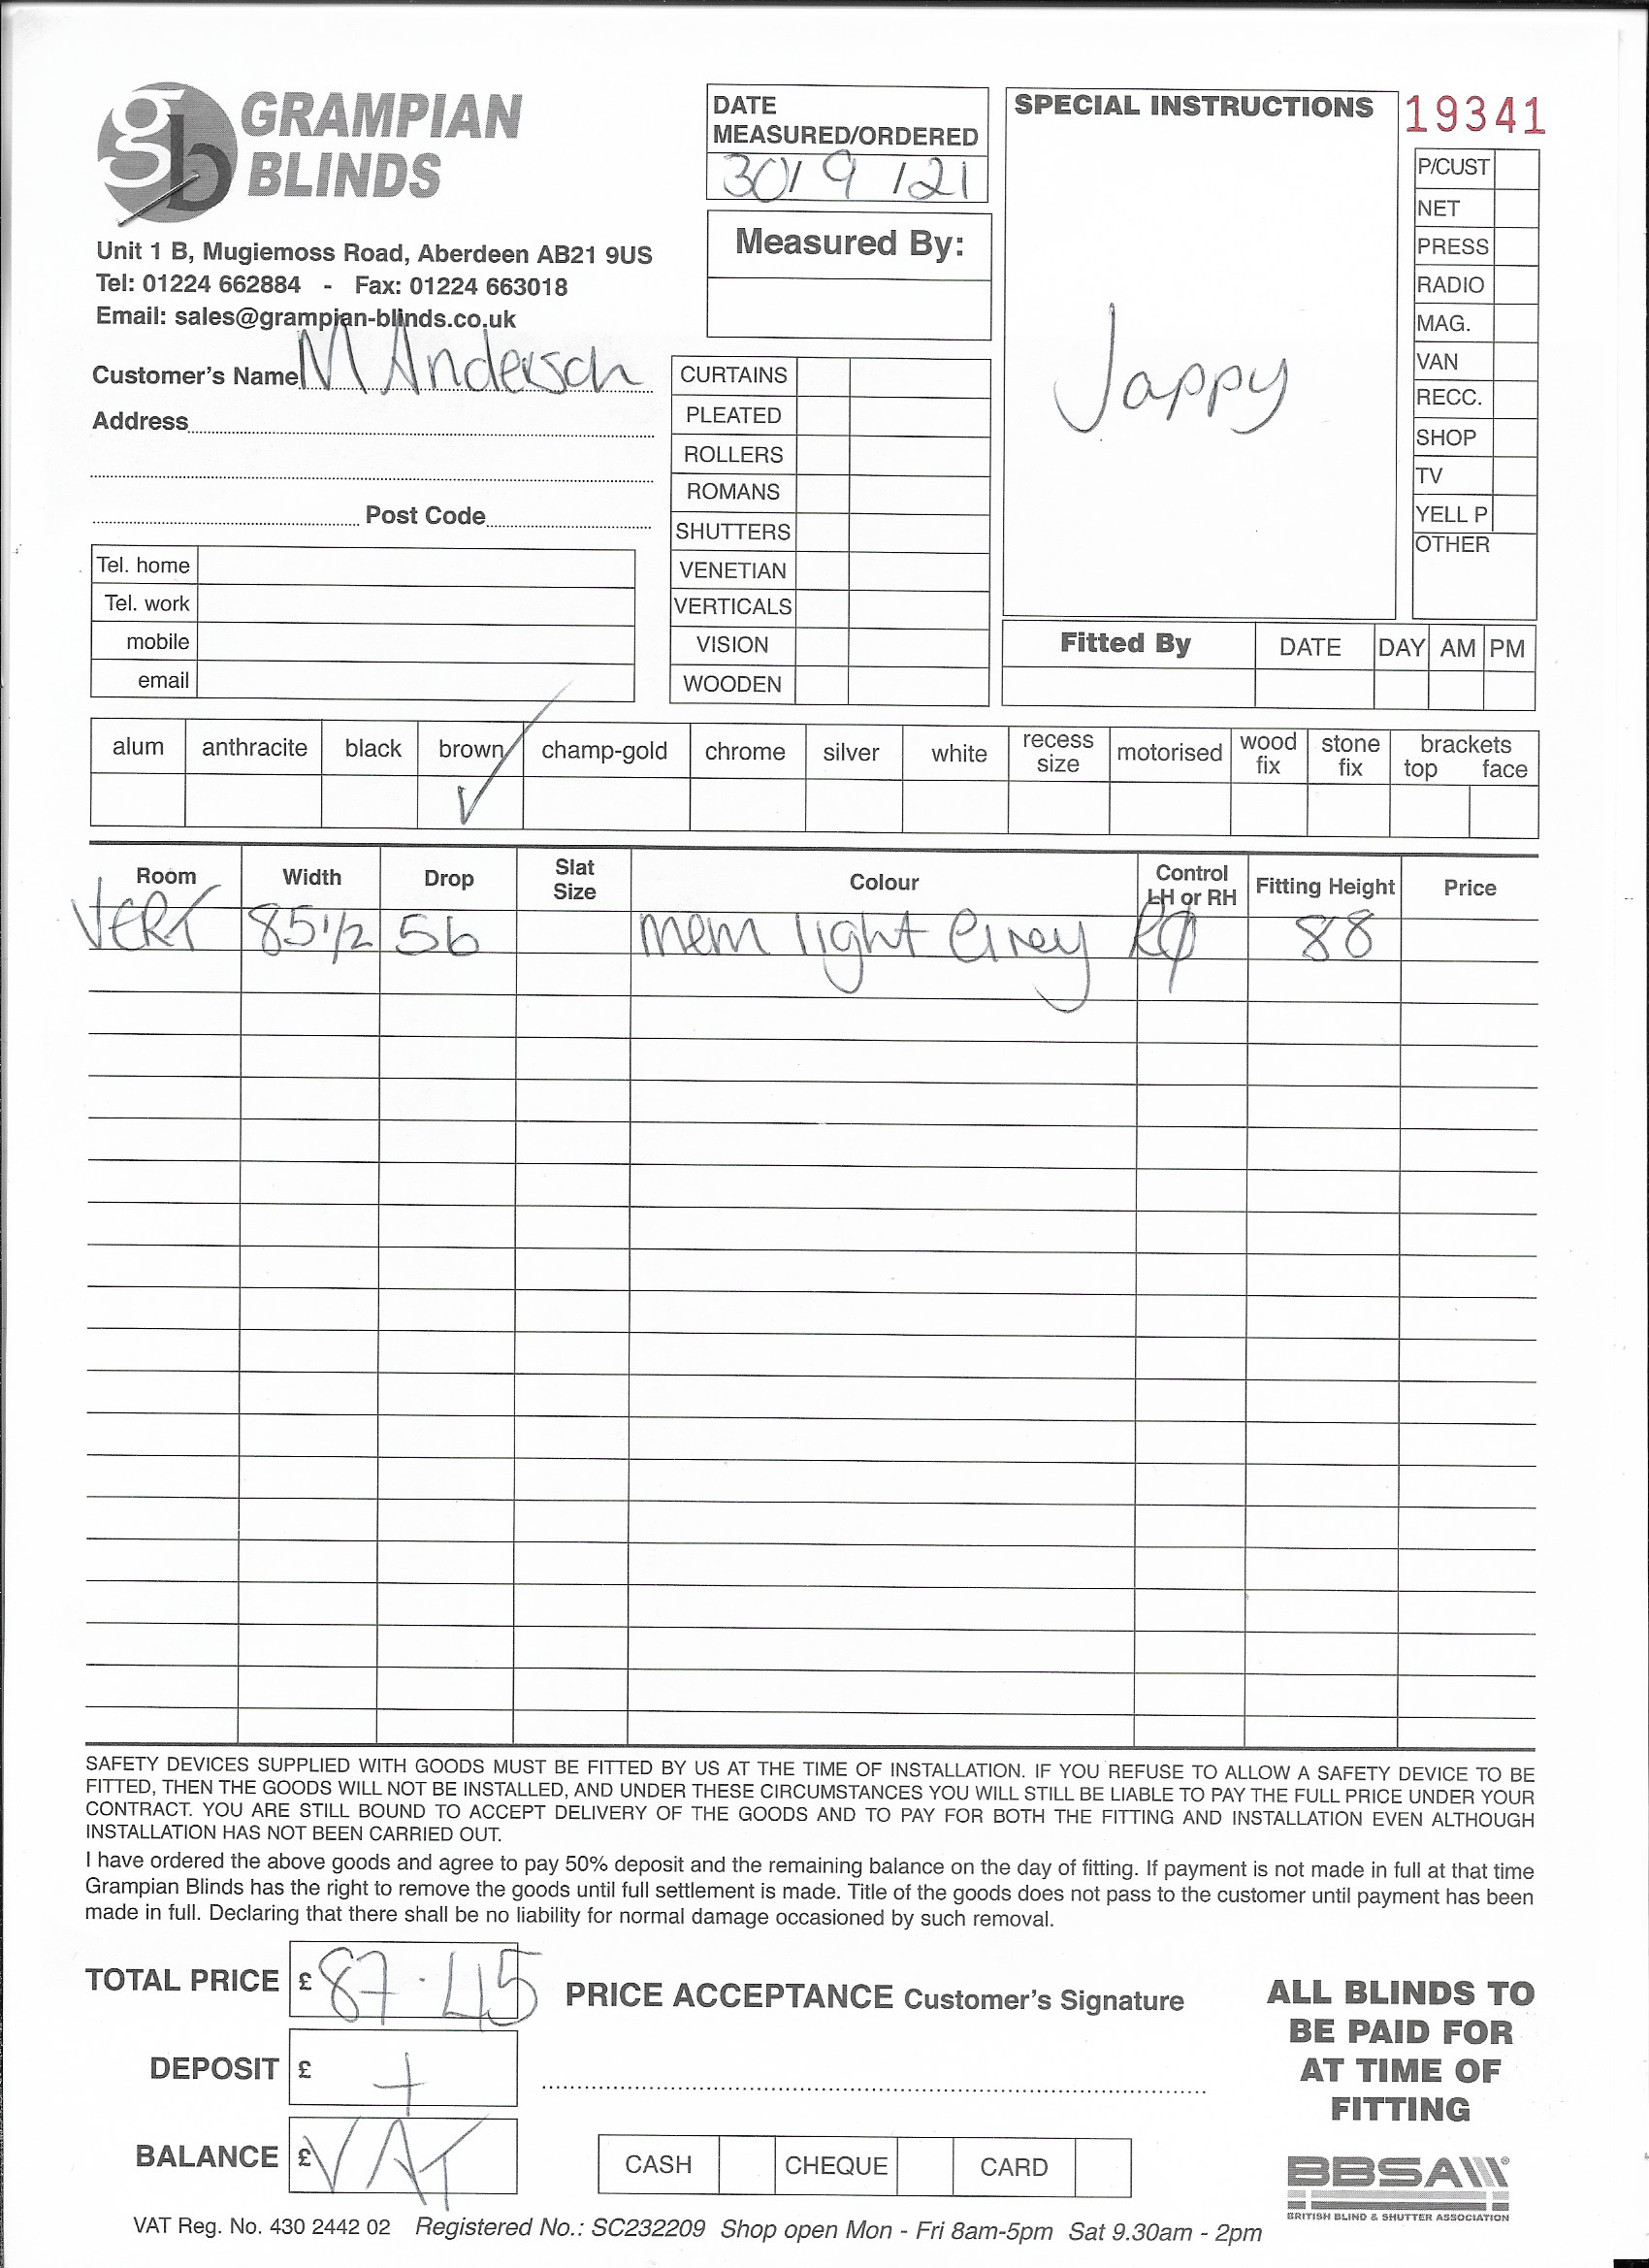 gb GRAMPIAN
BLINDS
Unit 1 B, Mugiemoss Road, Aberdeen AB21 9US
Tel: 01224 662884 - Fax: 01224 663018
Email: sales@grampian-blinds.co.uk
Customer's Name M Anderson
Address
Post Code
Tel. home
Tel. work
mobile
email
DATE
MEASURED/ORDERED
30/9/21
Measured By:
CURTAINS
PLEATED
ROLLERS
ROMANS
SHUTTERS
VENETIAN
VERTICALS
VISION
WOODEN
SPECIAL INSTRUCTIONS
Jappy
19341
P/CUST
NET
PRESS
RADIO
MAG.
VAN
RECC.
SHOP
TV
YELL P
OTHER
Fitted By DATE DAY AM PM
alum anthracite black brown champ-gold chrome silver white recess size motorised wood fix stone fix brackets top face
✓
Room Width Drop Slat Size Colour Control LH or RH Fitting Height Price
VERT 85 1/2 56 mem light Grey 88
SAFETY DEVICES SUPPLIED WITH GOODS MUST BE FITTED BY US AT THE TIME OF INSTALLATION. IF YOU REFUSE TO ALLOW A SAFETY DEVICE TO BE
FITTED, THEN THE GOODS WILL NOT BE INSTALLED, AND UNDER THESE CIRCUMSTANCES YOU WILL STILL BE LIABLE TO PAY THE FULL PRICE UNDER YOUR
CONTRACT. YOU ARE STILL BOUND TO ACCEPT DELIVERY OF THE GOODS AND TO PAY FOR BOTH THE FITTING AND INSTALLATION EVEN ALTHOUGH
INSTALLATION HAS NOT BEEN CARRIED OUT.
I have ordered the above goods and agree to pay 50% deposit and the remaining balance on the day of fitting. If payment is not made in full at that time
Grampian Blinds has the right to remove the goods until full settlement is made. Title of the goods does not pass to the customer until payment has been
made in full. Declaring that there shall be no liability for normal damage occasioned by such removal.
TOTAL PRICE £ 87.45
DEPOSIT £ +
BALANCE £ VAT
PRICE ACCEPTANCE Customer's Signature
CASH CHEQUE CARD
ALL BLINDS TO
BE PAID FOR
AT TIME OF
FITTING
BBSA
BRITISH BLIND & SHUTTER ASSOCIATION
VAT Reg. No. 430 2442 02 Registered No.: SC232209 Shop open Mon - Fri 8am-5pm Sat 9.30am - 2pm